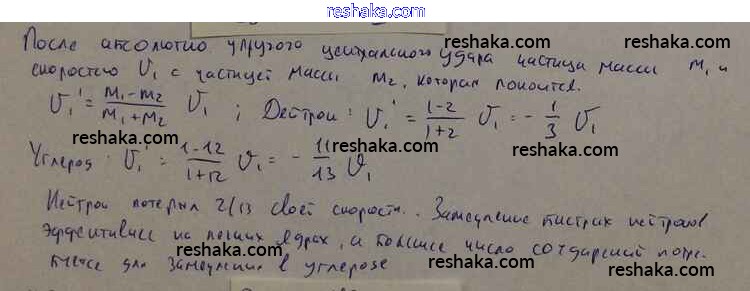 reshaka.com
После абсолютно упругого центрального удара частица массы m₁ и
скоростью υ₁ с частицей массы m₂, которая покоится.
reshaka.com reshaka.com
υ₁' = (m₁-m₂)/(m₁+m₂) υ₁ ; Дейтрон: υ₁' = (1-2)/(1+2) υ₁ = - 1/3 υ₁
reshaka.com reshaka.com
Углерод: υ₁' = (1-12)/(1+12) υ₁ = - 11/13 υ₁
reshaka.com reshaka.com
Нейтрон потерял 2/13 своей скорости. Замедление быстрых нейтронов
reshaka.com
эффективнее на легких ядрах, а большее число соударений потре-
reshaka.com
буется для замедления в углероде
reshaka.com reshaka.com